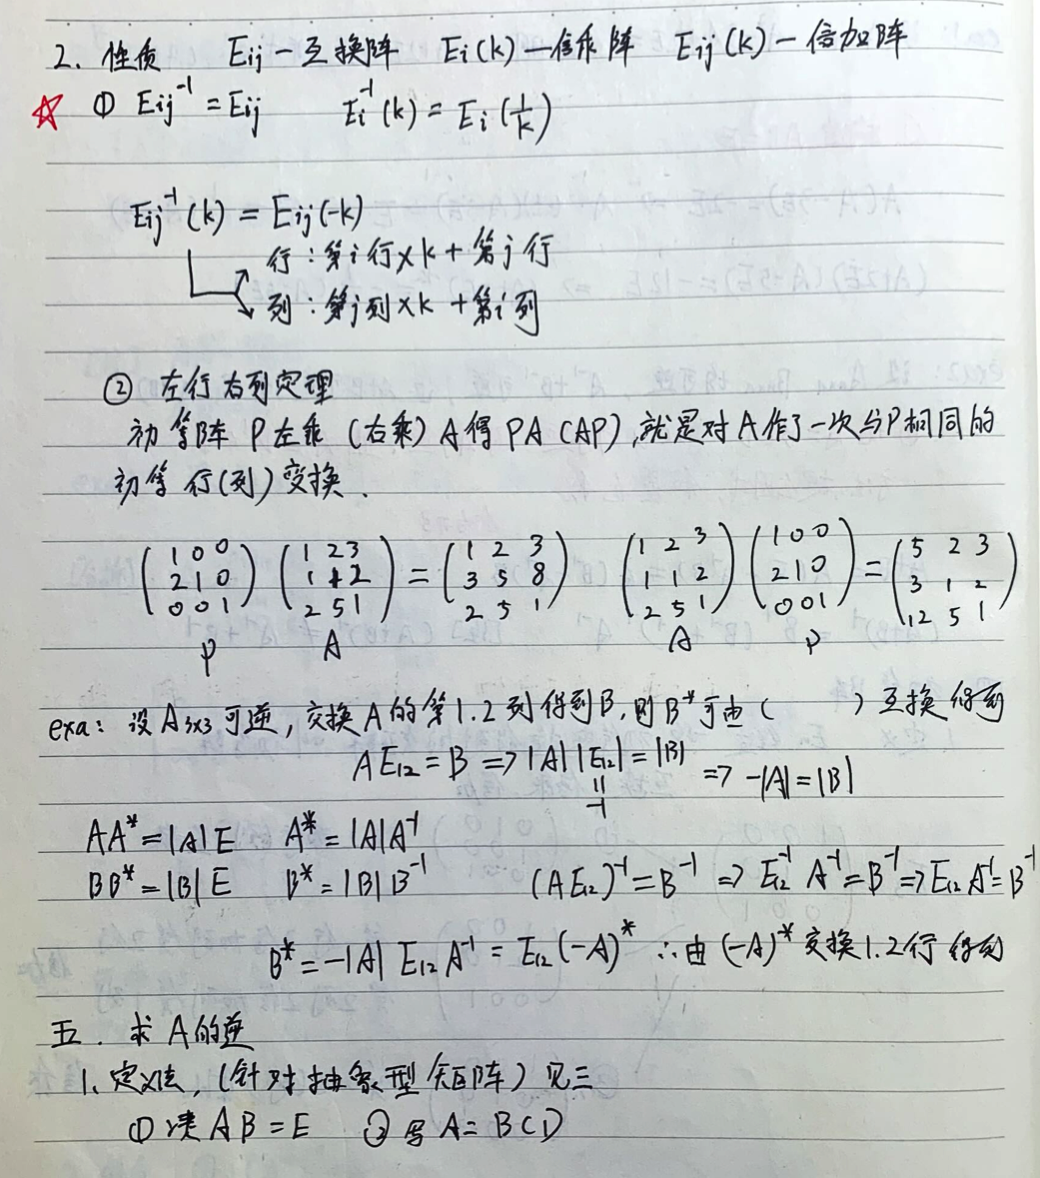 2. 性质 Eij—互换阵 Ei(k)—倍乘阵 Eij(k)—倍加阵
☆ ① Eij⁻¹ = Eij Ei⁻¹(k) = Ei(1/k)
Eij⁻¹(k) = Eij(-k)
行：第i行×k + 第j行
列：第j列×k + 第i列
② 左行右列定理
初等阵 P左乘（右乘）A得 PA（AP），就是对A作了一次与P相同的
初等 行(列) 变换．
(1 0 0) (1 2 3) = (1 2 3) (1 2 3) (1 0 0) = (5 2 3)
(2 1 0) (1 1 2) = (3 5 8) (1 1 2) (2 1 0) = (3 1 2)
(0 0 1) (2 5 1) = (2 5 1) (2 5 1) (0 0 1) = (12 5 1)
P A A P
exa：设A3x3可逆，交换A的第1.2列得到B，则B*可由（ ）互换得到
AE12 = B => |A| |E12| = |B| => -|A| = |B|
॥
-1
AA* = |A|E A* = |A|A⁻¹
BB* = |B|E B* = |B|B⁻¹ (AE12)⁻¹ = B⁻¹ => E12⁻¹ A⁻¹ = B⁻¹ => E12 A⁻¹ = B⁻¹
B* = -|A| E12 A⁻¹ = E12 (-A)* ∴由 (-A)* 交换1.2行 得到
五．求A的逆
1、定义法，(针对抽象型矩阵) 见三
① 凑 AB = E ② 写 A = BCD